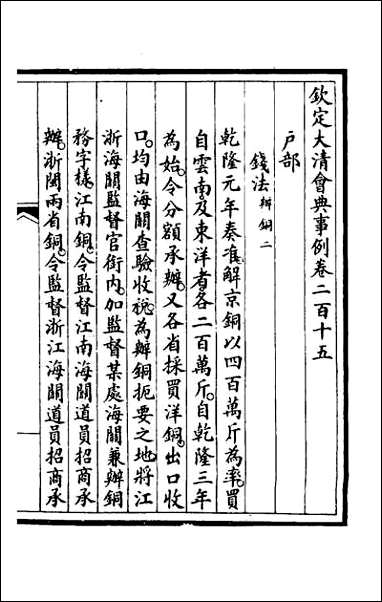 欽定大清會典事例卷二百十五
戶部
錢法辦銅二
乾隆元年奏准解京銅以四百萬斤為率買
自雲南及東洋者各二百萬斤自乾隆三年
為始令分額承辦又各省採買洋銅出口收
口均由海關查驗收稅為辦銅扼要之地將江
浙海關監督官銜內加監督某處海關兼辦銅
務字樣江南銅令監督江南海關道員招商承
辦浙閩兩省銅令監督浙江海關道員招商承